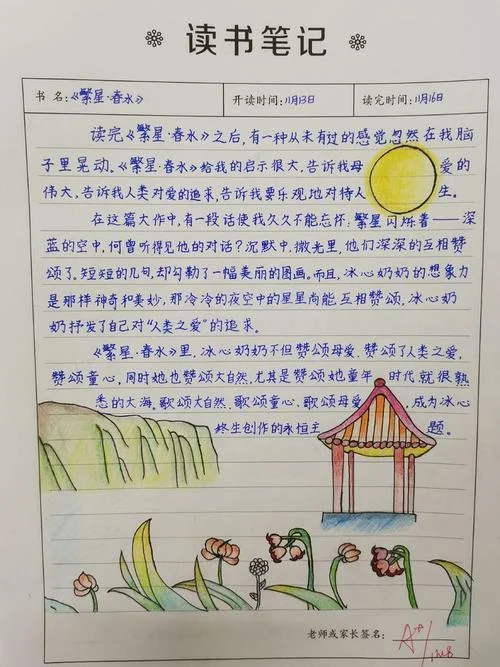 读书笔记
书名：《繁星·春水》 开读时间：11月13日 读完时间：11月16日
读完《繁星·春水》之后，有一种从未有过的感觉忽然在我脑
子里晃动。《繁星·春水》给我的启示很大，告诉我母爱的
伟大，告诉我人类对爱的追求，告诉我要乐观地对待人生。
在这篇大作中，有一段话使我久久不能忘怀：繁星闪烁着——深
蓝的空中，何曾听得见他的对话？沉默中，微光里，他们深深的互相赞
颂了。短短的几句，却勾勒了一幅美丽的图画。而且，冰心奶奶的想象力
是那样神奇和美妙，那冷冷的夜空中的星星尚能互相赞颂，冰心奶
奶抒发了自己对“人类之爱”的追求。
《繁星·春水》里，冰心奶奶不但赞颂母爱、赞颂了人类之爱，
赞颂童心，同时她也赞颂大自然，尤其是赞颂她童年时代就很熟
悉的大海，歌颂大自然、歌颂童心、歌颂母爱，成为冰心
终生创作的永恒主题。
老师或家长签名：